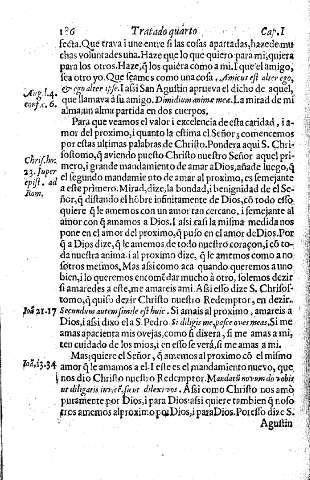 186 Tratado quarto Cap. I
secta. Que trava i une entre si las cosas apartadas, haze de mu
chas voluntades una. Haze que lo que quiero para mi, quiera
para los otros. Haze, q̃ los quiera como a mi. I que el amigo,
sea otro yo. Que seamos como una cosa. Amicus est alter ego,
& ego alter ipse. I assi San Agustin aprueva el dicho de aquel,
que llamava a su amigo. Dimidium animæ meæ. La mitad de mi
alma, un alma partida en dos cuerpos.
Aug. l. 4.
conf. c. 6.
Para que veamos el valor i excelencia de esta caridad, i a
mor del proximo, i quanto la estima el Señor; comencemos
por estas ultimas palabras de Christo. Pondera aqui S. Chri
sostomo, q̃ aviendo puesto Christo nuestro Señor aquel pri-
mero, i grande mandamiento de amar a Dios, añade luego, q̃
el segundo mandamiẽto de amar al proximo, es semejante
a este primero. Mirad, dize, la bondad, i benignidad de el Se-
ñor, q̃ distando el hõbre infinitamente de Dios, cõ todo esso
quiere q̃ le amemos con un amor tan cercano, i semejante al
amor con q̃ amamos a Dios. I assi casi la misma medida nos
pone en el amor del proximo, q̃ puso en el amor de Dios. Por
q̃ a Dios dize, q̃ le amemos de todo nuestro coraçon, i cõ to-
da nuestra anima. i al proximo dize, q̃ le amemos como a no
sotros mesmos. Mas assi como acà quando queremos a uno
bien, i lo queremos encomẽdar mucho à otro, solemos dezir
si amaredes a este, me amareis a mi. Assi dize S. Chrisos-
tomo, q̃ quiso dezir Christo nuestro Redemptor, en dezir.
Chris. ho.
23. super
epist. ad
Rom.
Secundum autem simile est huic. Si amais al proximo, amareis
a Dios, i assi dixo el a S. Pedro. Si diligis me, pasce oves meas. Si me
amas apacienta mis ovejas, como si dixera, si me amas a mi,
ten cuidado de los mios, i en esso se verà, si me amas a mi.
Ioã 21. 17
Mas, quiere el Señor, q̃ amemos al proximo cõ el mismo
amor q̃ le amamos a el. I este es el mandamiento nuevo, que
nos dio Christo nuestro Redemptor. Mandatũ novum do vobis
ut diligatis invicẽ, sicut dilexi vos. Assi como Christo nos amò
puramente por Dios, i para Dios: assi quiere tambien q̃ noso
tros amemos al proximo por Dios, i para Dios. Por esso dize S.
Ioã. 13. 34
Agustin